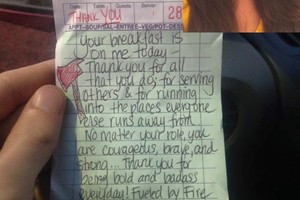 Date Table Guests Server
THANK YOU 28
APPT-SOUP/SAL-ENTREE-VEG/POT-DESS
Your breakfast is
on me today -
Thank you for all
that you do; for serving
others & for running
into the places everyone
else runs away from
No matter your role, you
are courageous, brave, and
strong... Thank you for
being bold and badass
everyday! Fueled by Fire